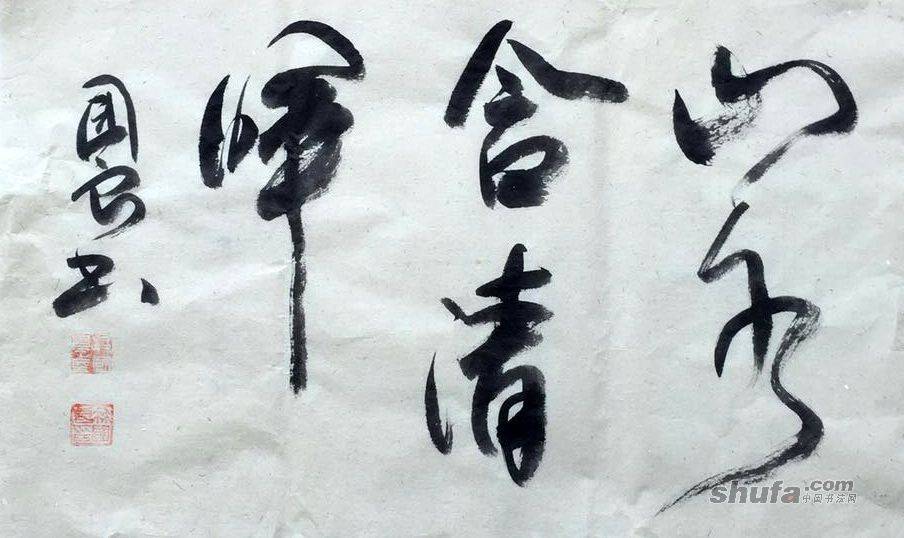 山水
含清
暉
国良书
shufa.com
中国书法网